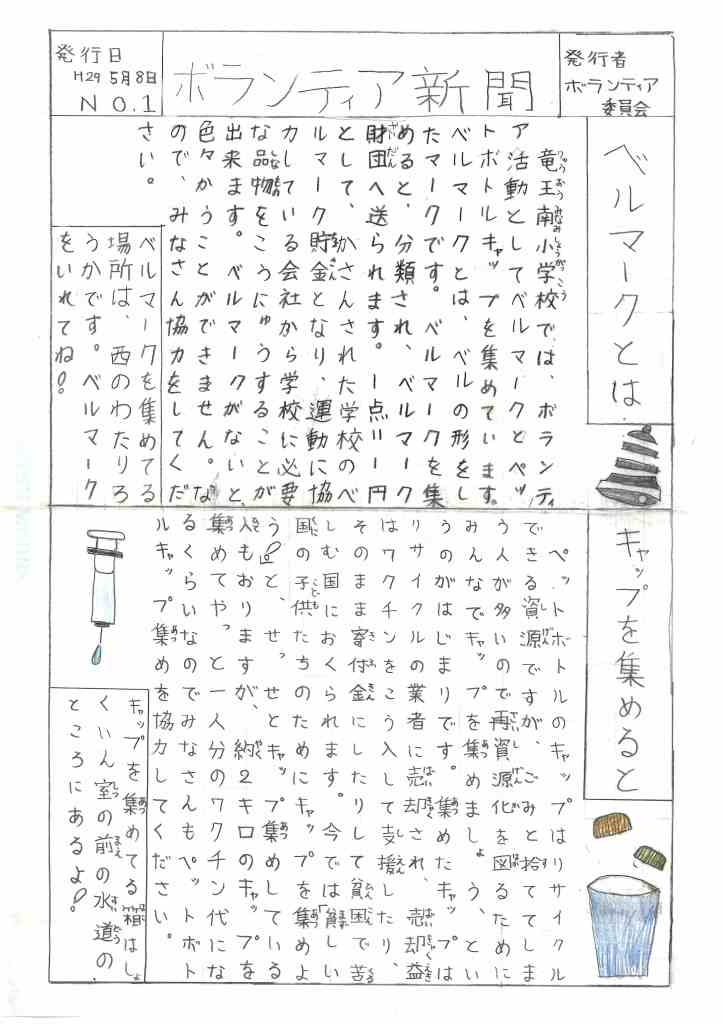 発行日
H29 5月8日
NO.1
ボランティア新聞
発行者
ボランティア
委員会
ベルマークとは
竜王南小学校では、ボランティ
ア活動としてベルマークとペッ
トボトルキャップを集めています。
ベルマークとは、ベルの形をし
たマークです。ベルマークを集
めると、分類され、ベルマーク
財団へ送られます。一点=一円
として、かさんされた学校のベ
ルマーク貯金となり、運動に協
力している会社から学校に必要
な品物をこうにゅうすることが
出来ます。ベルマークがないと、
色々かうことができません。な
ので、みなさん協力をしてくだ
さい。
ベルマークを集めてる
場所は、西のわたりろ
うかです。ベルマーク
をいれてね!
キャップを集めると
ペットボトルのキャップはリサイクル
できる資源ですが、ごみと拾ててしま
う人が多いので再資源化を図るために
みんなでキャップを集めましょう、とい
うのがはじまりです。集めたキャップは
リサイクルの業者に売却され、売却益
はワクチンをこう入して支援したり、
そのまま寄付金にしたりして貧困で苦
しむ国におくられます。今では「貧しい
国の子供たちのためにキャップを集めよ
う」と、せっせとキャップ集めしている
人もおりますが、約2キロのキャップを
集めてやっと一人分のワクチン代にな
るくらいなのでみなさんもペットボト
ルキャップ集めを協力してください。
キャップを集めてる箱はしょ
くいん室の前の水道の、
ところにあるよ!